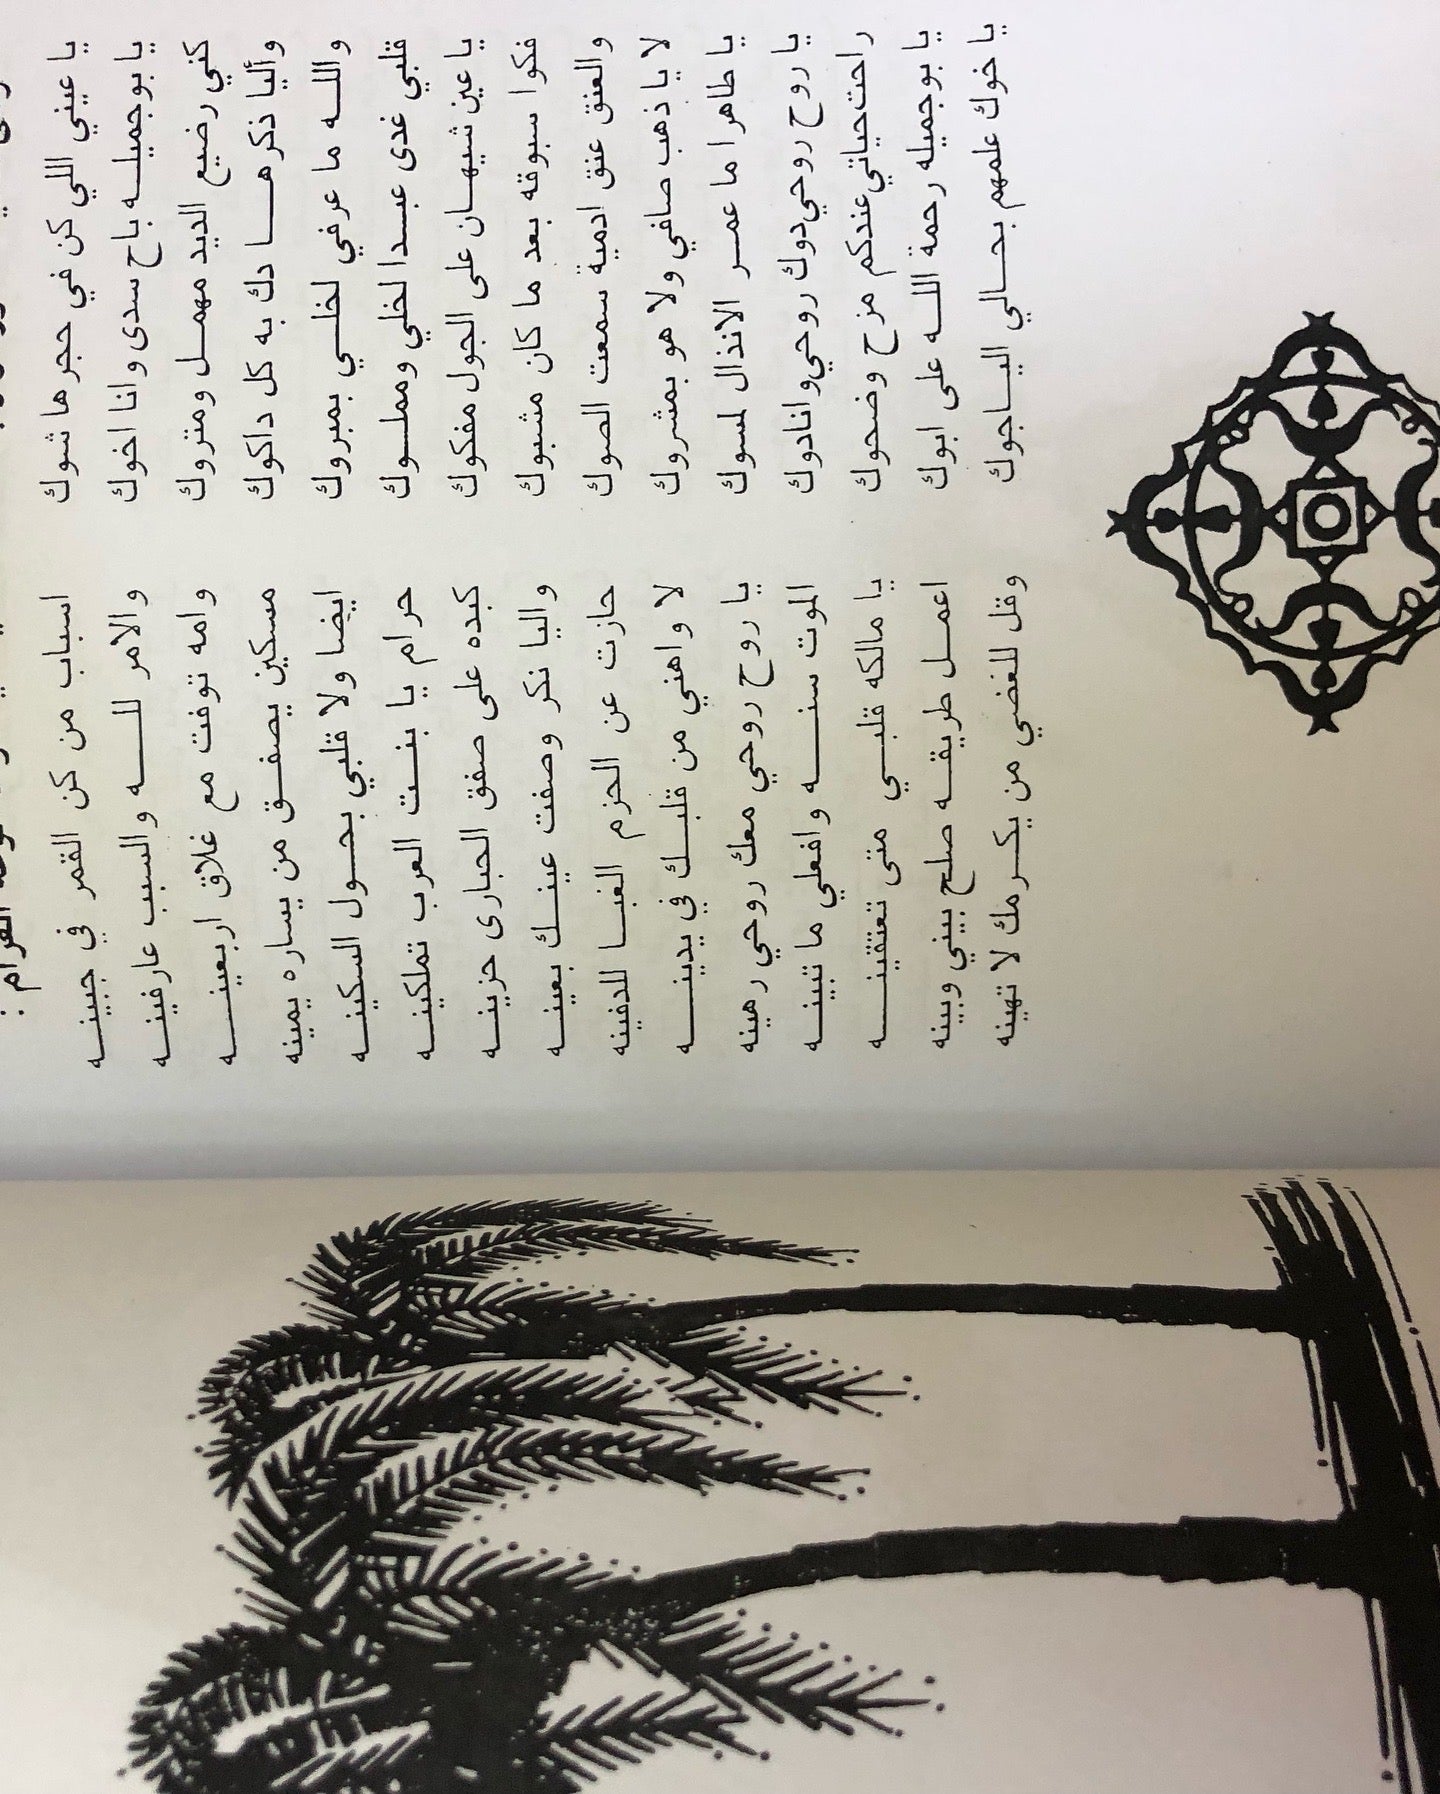 الغرام :
يا عيني اللي كن في حجرها شوك اسباب من كن القمر في جبينه
يا بوجميله باح سدى وانا اخوك والامر لله والسبب عارفينه
كني رضيع الديد مهمل ومتروك وامه توفت مع غلاق اربعينه
وأليا ذكرها دك به كل داكوك مسكين يصفق من يساره يمينه
والله ما عرفي لخلي بمبروك ايضا ولا قلبي بحول السكينه
قلبي غدى عبدا لخلي ومملوك حرام يا بنت العرب تملكينه
يا عين شيهان على الجول مفكوك كبده على صفق الحبارى حزينه
فكوا سبوقه بعد ما كان مشبوك واليا نكر وصفت عينك بعينه
والعنق عنق ادمية سمعت الصوك حازت عن الحزم الغبا للدفينه
لا يا ذهب صافي ولا هو بمشروك لا واهني من قلبك في يدينه
يا طاهرا ما عمر الانذال لمسوك يا روح روحي معك روحي رهينه
يا روح روحي دوك روحي وانا دوك الموت سنه وافعلي ما تبينه
راحت حياتي عندكم مزح وضحوك يا مالكه قلبي متى تعتقينه
يا بوجميله رحمة الله على ابوك اعمل طريقه صلح بيني وبينه
يا خوك علمهم بحالي الياجوك وقل للغضي من يكرمك لا تهينه